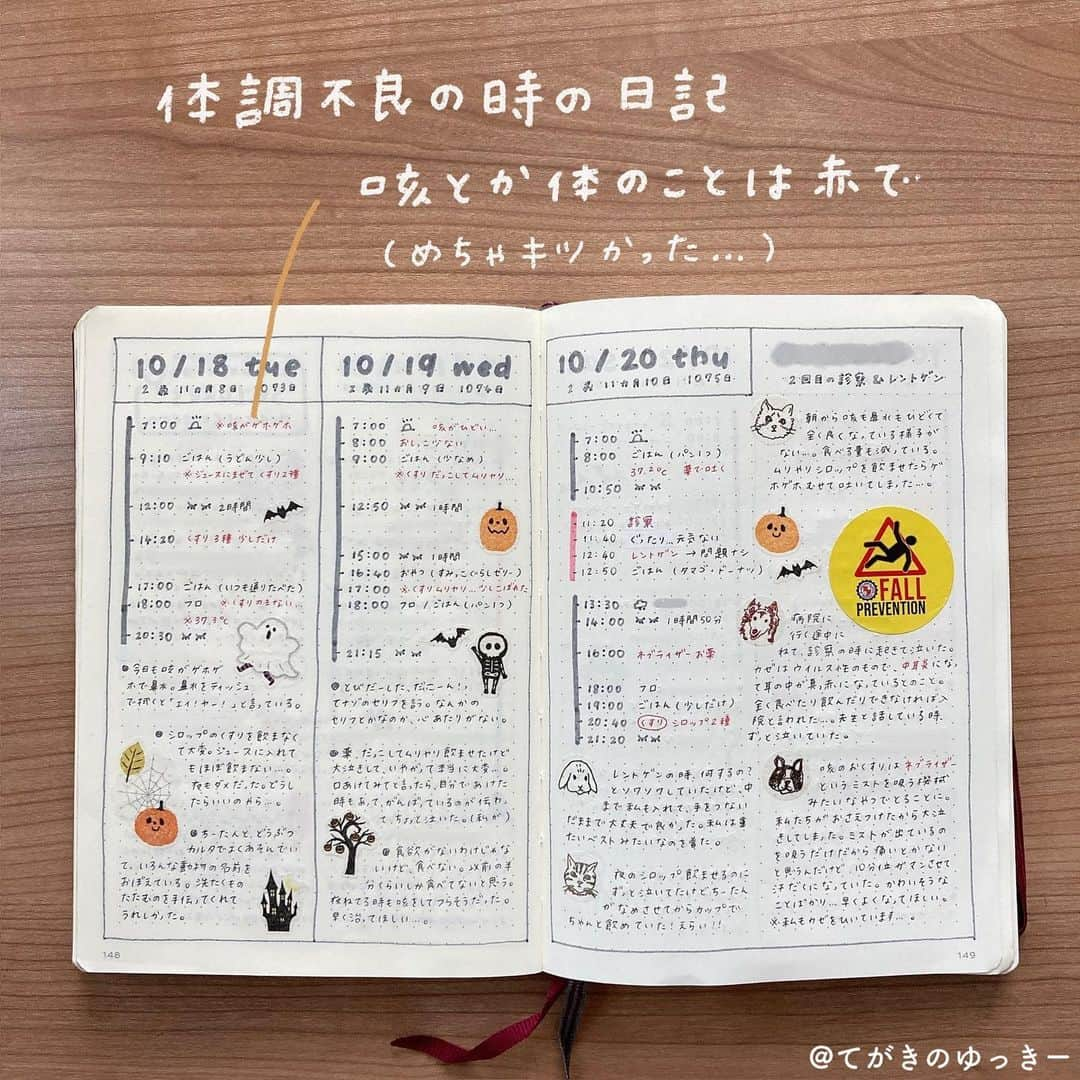 体調不良の時の日記
咳とか体のことは赤で
(めちゃキツかった…)
10/18 tue
2歳11カ月8日 1073日
7:00 ※咳がゲホゲホ
9:10 ごはん(うどん少し)
※ジュースにまぜてくすり2種
12:00 2時間
14:20 くすり3種 少しだけ
17:00 ごはん(いつも通りたべた)
18:00 フロ ※くすりのまない…
※37.3℃
20:30
今日も咳がゲホゲ
ホで鼻水。鼻水をティッシュ
で拭くと「エイ!ヤー!」と言っている。
シロップのくすりを飲まなく
て大変。ジュースに入れて
もほぼ飲まない…。
夜もダメだった。どうし
たらいいのやら…。
ちーたんと、どうぶつ
カルタでよくあそんでい
て、いろんな動物の名前を
おぼえている。洗たくもの
たたむのを手伝ってくれて
うれしかった。
148
10/19 wed
2歳11カ月9日 1074日
7:00 咳がひどい…
8:00 おしっこ少ない
9:00 ごはん(少なめ)
※くすり だっこしてムリヤリ…
12:50 1時間
15:00 1時間
16:40 おやつ(すみっこぐらしゼリー)
17:00 ※くすりムリヤリ…少しこぼれた
18:00 フロ/ごはん(パン1つ)
21:15
とびだーした、だこーん!っ
てナゾのセリフを言う。なんかの
セリフとかなのか、心あたりがない。
薬、だっこしてムリヤリ飲ませたけど
大泣きして、いやがって本当に大変…。
口あけてみてと言ったら、自分であけた
時もあって、がんばっているのが伝わっ
て、ちょっと泣いた。(私が)
食欲がないわけじゃな
いけど、食べない。以前の半
分くらいしか食べてないと思う。
ねてる時も咳をしてつらそうだった。
早く治ってほしい…。
10/20 thu
2歳11カ月10日 1075日
7:00
8:00 ごはん(パン1つ)
37.2℃ 薬で吐く
10:50
11:20 診察
11:40 ぐったり…元気ない
12:40 レントゲン→問題ナシ
12:50 ごはん(タマゴ・ドーナツ)
13:30
14:00 1時間50分
16:00 ネブライザーお薬
18:00 フロ
19:00 ごはん(少しだけ)
20:40 くすり シロップ2種
21:20
レントゲンの時、何するの?
とソワソワしていたけど、中
まで私も入れて、手をつない
だままで大丈夫で良かった。私は重
たいベストみたいなのを着た。
夜のシロップ飲ませるのに
ずっと泣いてたけどちーたん
がなめさせてからカップで
ちゃんと飲めていた!えらい!!
2回目の診察&レントゲン
朝から咳も鼻水もひどくて
全く良くなっている様子が
ない…。食べる量も減っている。
ムリヤリシロップを飲ませたらゲ
ホゲホむせて吐いてしまった…。
FALL
PREVENTION
病院に
行く途中に
ねて、診察の時に起きて泣いた。
カゼはウイルス性のもので、中耳炎になっ
て耳の中が真っ赤になっているとのこと。
全く食べたり飲んだりできなければ入
院と言われた…。先生と話している時、
ずっと泣いていた。
咳のおくすりはネブライザー
というミストを吸う機械
みたいなやつでとることに。
私たちがおさえつけたから大泣
きしてしまった。ミストが出ているの
を吸うだけだから痛いとかない
と思うんだけど、10分位ガマンさせて
汗だくになっていた。かわいそうな
ことばかり…早くよくなってほしい。
※私もカゼをひいています…。
149
@てがきのゆっきー